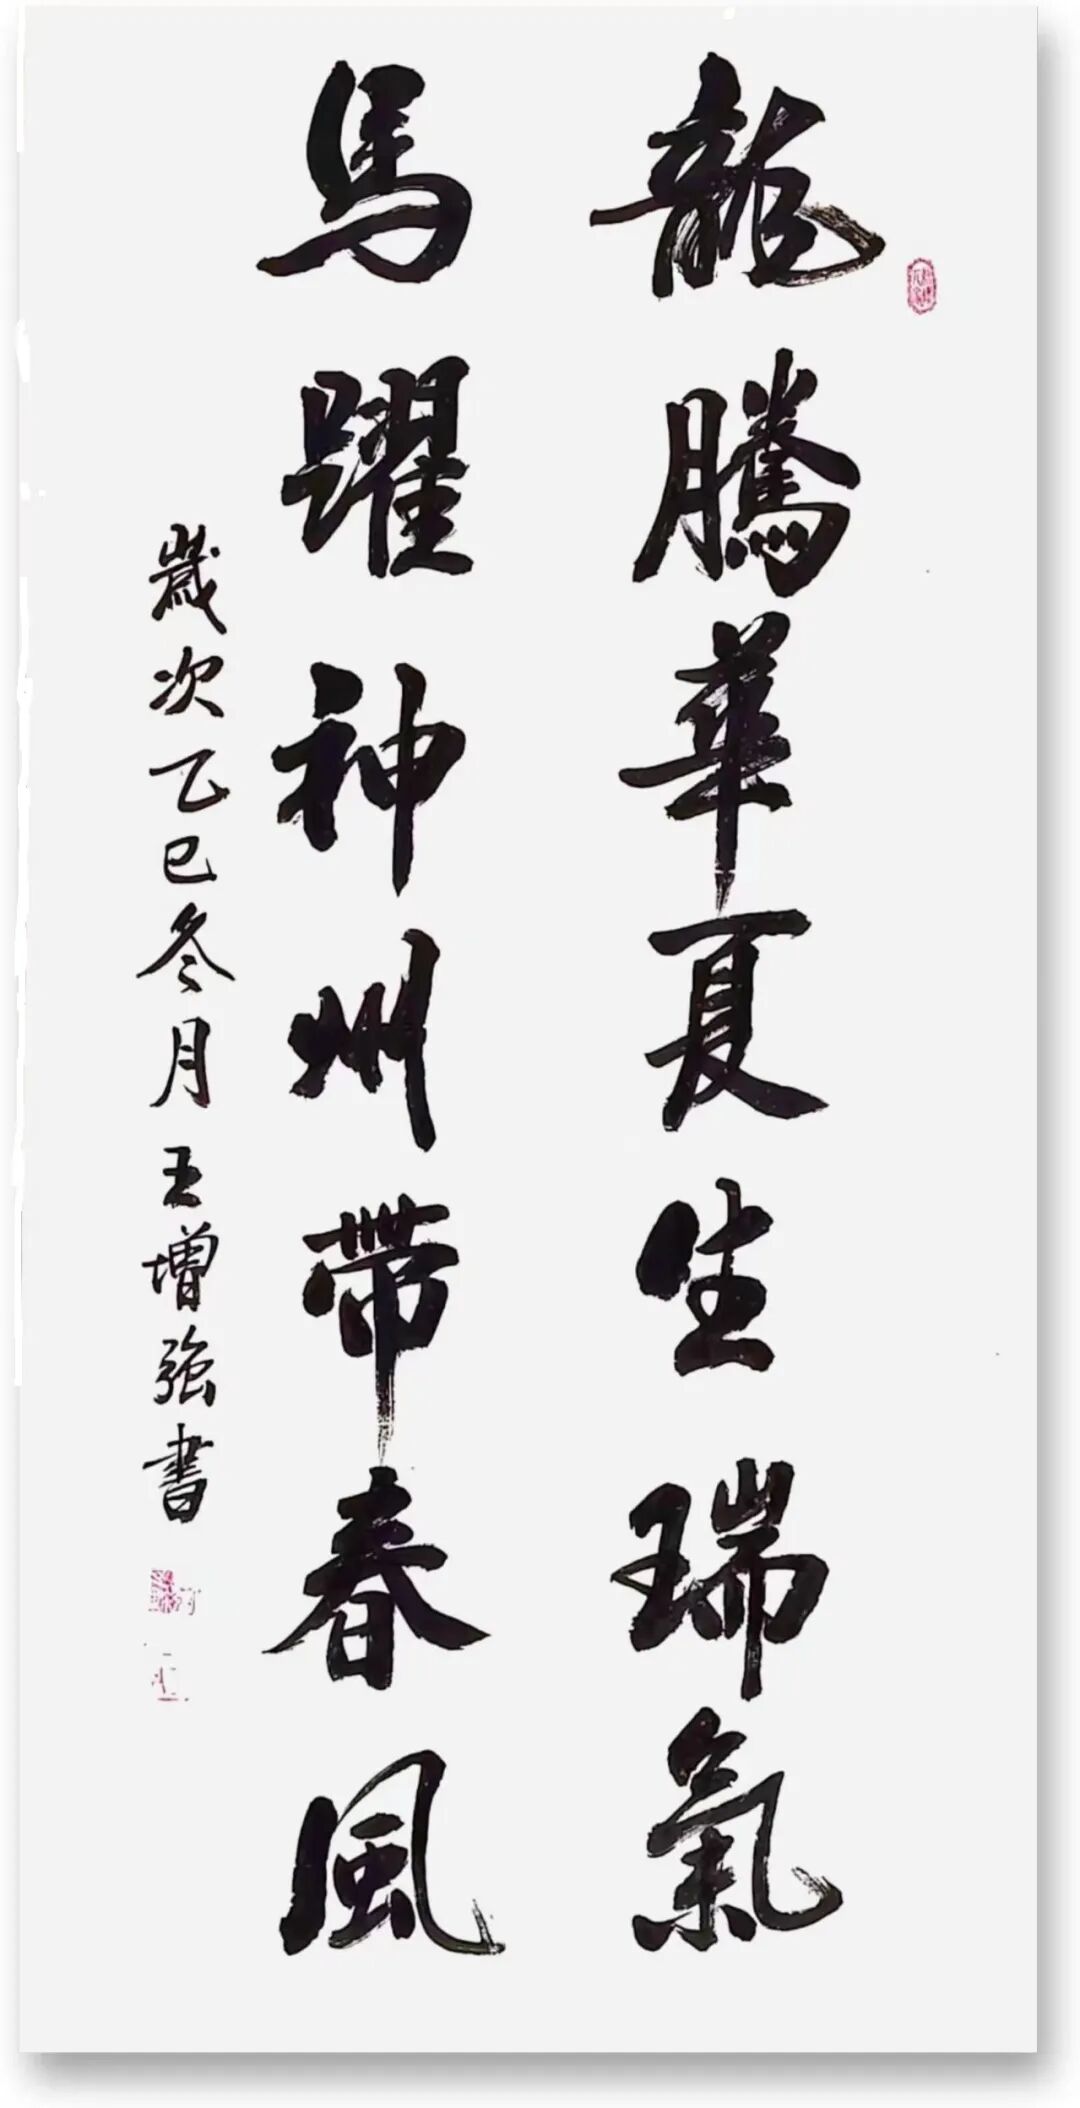 龍騰華夏生瑞氣
馬躍神州帶春風
歲次乙巳冬月王增強書